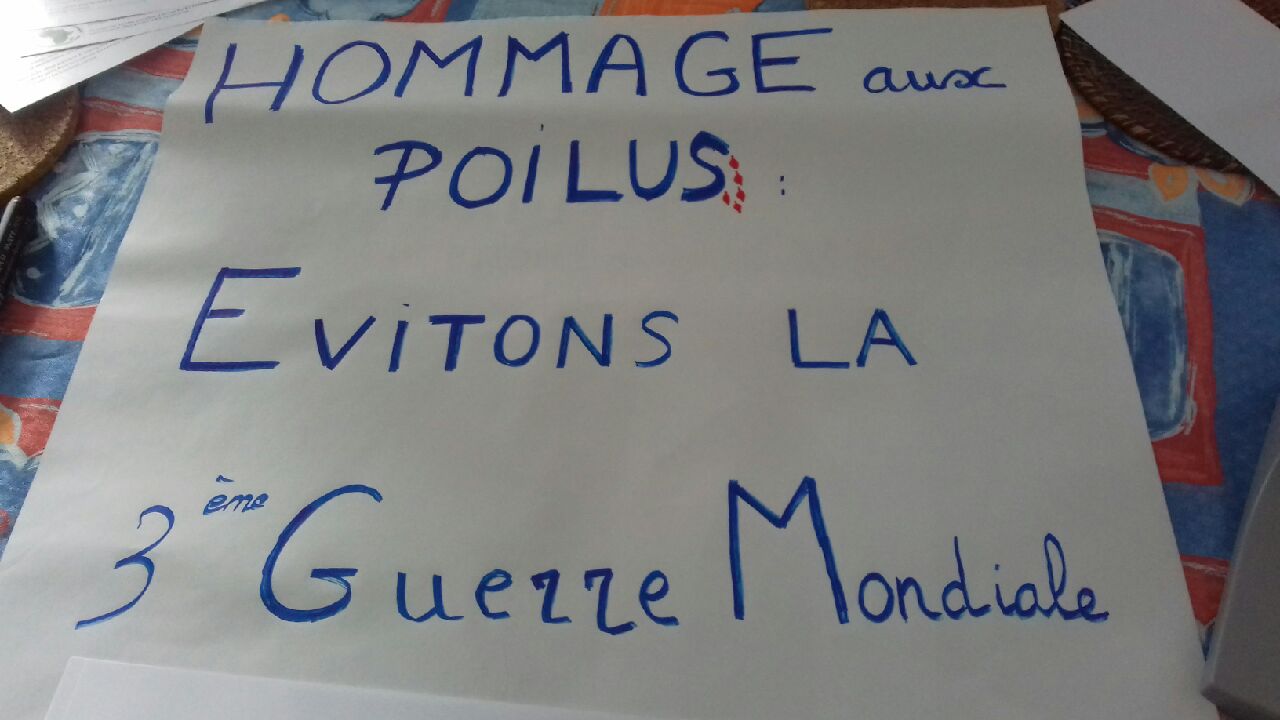 HOMMAGE aux
POILUS :
EVITONS LA
3ême Guerre Mondiale